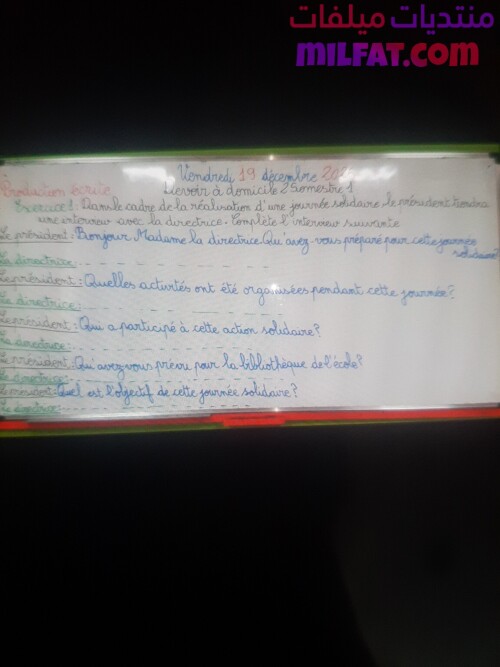 منتديات ميلفات
MILFAT.COM
Vendredi 19 décembre
Production écrite
Devoir à domicile 2 Semestre 1
Exercice 1: Dans le cadre de la réalisation d'une journée solidaire, le président tiendra
une interview avec la directrice. Complète l'interview suivante
Le président: Bonjour Madame la directrice. Qu'avez-vous préparé pour cette journée
solidaire?
La directrice:
Le président: Quelles activités ont été organisées pendant cette journée?
La directrice:
Le président: Qui a participé à cette action solidaire?
La directrice:
Le président: Qu'avez-vous prévu pour la bibliothèque de l'école?
La directrice:
Le président: Quel est l'objectif de cette journée solidaire?
La directrice: